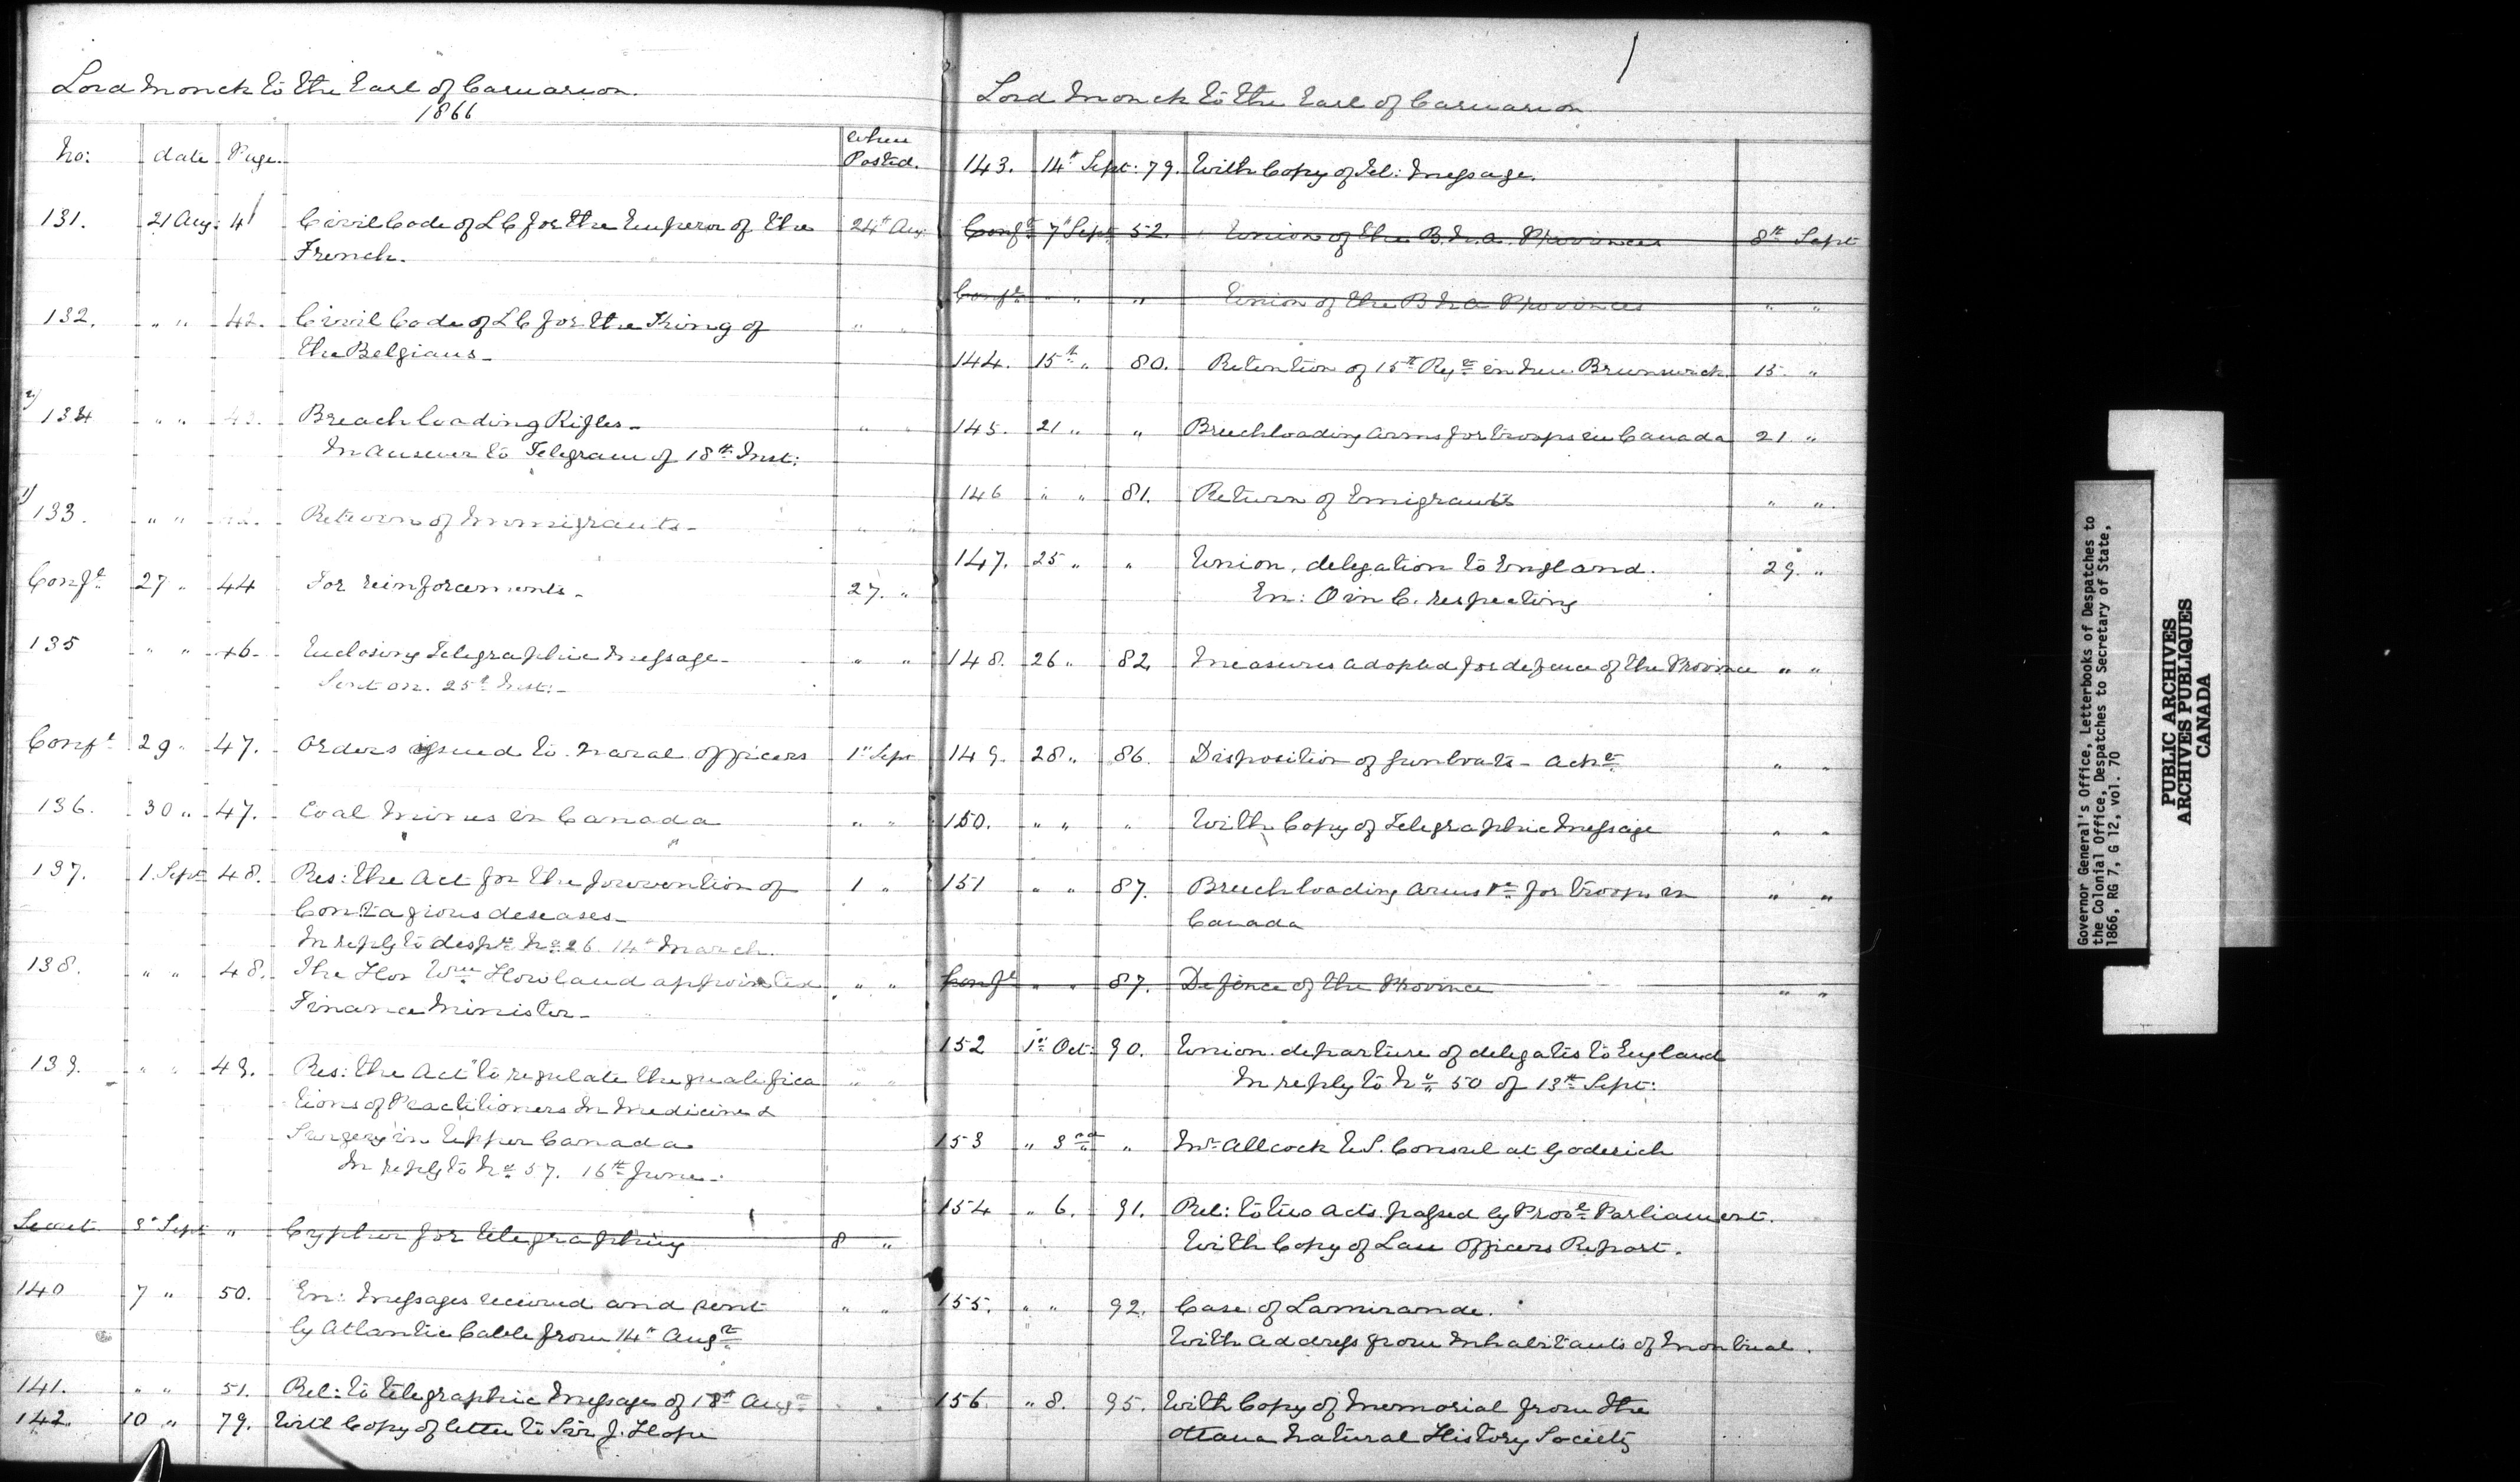 Lord Monck to the Earl of Carnarvon.
1866
No: date Page. When
Posted.
131. 21 Aug: 41 Civil Code of LC for the Emperor of the 24th Aug:
French.
132. " " 42. Civil Code of LC for the King of " "
the Belgians_
2) 134 " " 43. Breach loading Rifles_ " "
In answer to Telegram of 18th Inst:
1) 133. " " Return of Immigrants_ " "
Conft 27 " 44 For reinforcements_ 27. "
135 " " 46_ Enclosing Telegraphic Message_ " "
Sent on. 25th Inst:_
Conft 29 " 47. Orders issued to Naval Officers 1st Sept
136. 30 " 47. Coal Mines in Canada " "
137. 1 Sept 48. Res: the Act for the prevention of 1 "
Contagious deseases_
In reply to despch No 26. 14th March.
138. " " 48. The Hon Wm Howland appointed " "
Finance Minister_
139. " " 49. Res: the Act "to regulate the qualifica " "
tions of Practitioners in Medicine &
Surgery in Upper Canada
In reply to No 57. 16th June_
Secret 3d Sept " Cypher for telegraphing 8 "
140 7 " 50. En: Messages received and sent " "
by Atlantic Cable from 14th Augst
141. " " 51. Rel: to telegraphic Message of 18th Augst "
142. 10 " 79. With Copy of letter to Sir J. Hope
Lord Monck to the Earl of Carnarvon
143. 14th Sept: 79. With Copy of Tel: Message.
Conft 7th Sept 52. Union of the B.N.A. Provinces 8th Sept
Conft " " " Union of the B N A Provinces " "
144. 15th " 80. Retention of 15th Regt in New Brunswick 15. "
145. 21 " " Breechloading arms for troops in Canada 21 "
146 " " 81. Return of Emigrants " ".
147. 25 " " Union, delegation to England. 29. "
En: O in C. respecting
148. 26 " 82, Measures adopted for defence of the Province " "
149. 28 " 86. Disposition of gunboats_ Ackt " "
150. " " " With Copy of Telegraphic Message " "
151 " " 87. Breech loading arms for troops in " "
Canada
Conft " " 87. Defence of the Province " "
152 1st Oct: 90. Union. departure of delegates to England
In reply to No 50 of 13th Sept:
153 " 3rd " Mr Allcock U.S. Consul at Goderich
154 " 6. 91. Rel: to two Acts passed by Provl Parliament.
With Copy of Law Officers Report.
155. " " 92. Case of Lamirande.
With address from Inhabitants of Montreal.
156. " 8. 95. With Copy of Memorial from the
Ottawa Natural History Society
Governor General's Office, Letterbooks of Despatches to
the Colonial Office, Despatches to Secretary of State,
1866, RG 7, G 12, vol. 70
PUBLIC ARCHIVES
ARCHIVES PUBLIQUES
CANADA